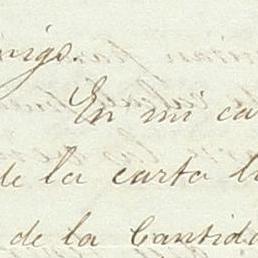 migo.
En mi ca
de la carta l
de la Cantida